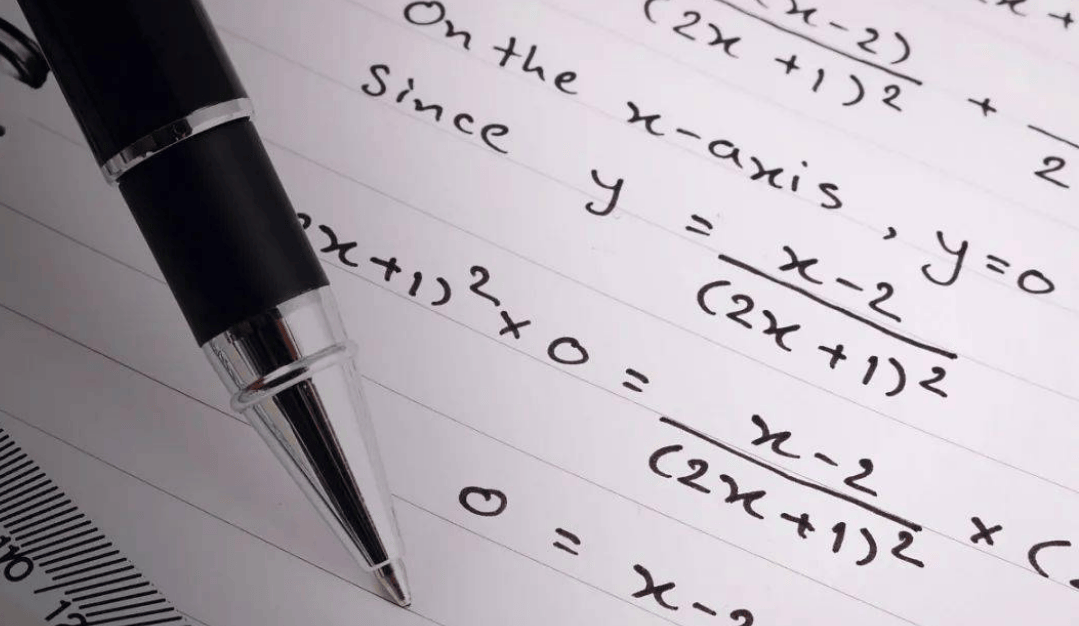 x-2)
(2x +1)² +
2
On the x-axis, y=0
Since y = x-2
(2x +1)²
x+1)² × 0 = x-2 × (
(2x+1)²
0 = x-2
10 12